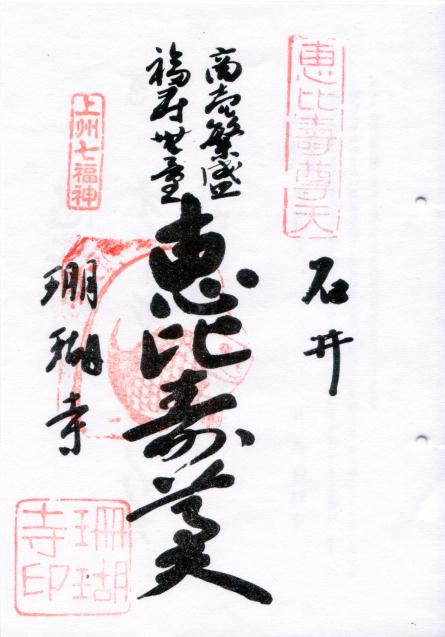 恵比壽尊天
石井
商売繁盛
福寿無量
恵比寿尊天
上州七福神
珊瑚寺
珊瑚寺印